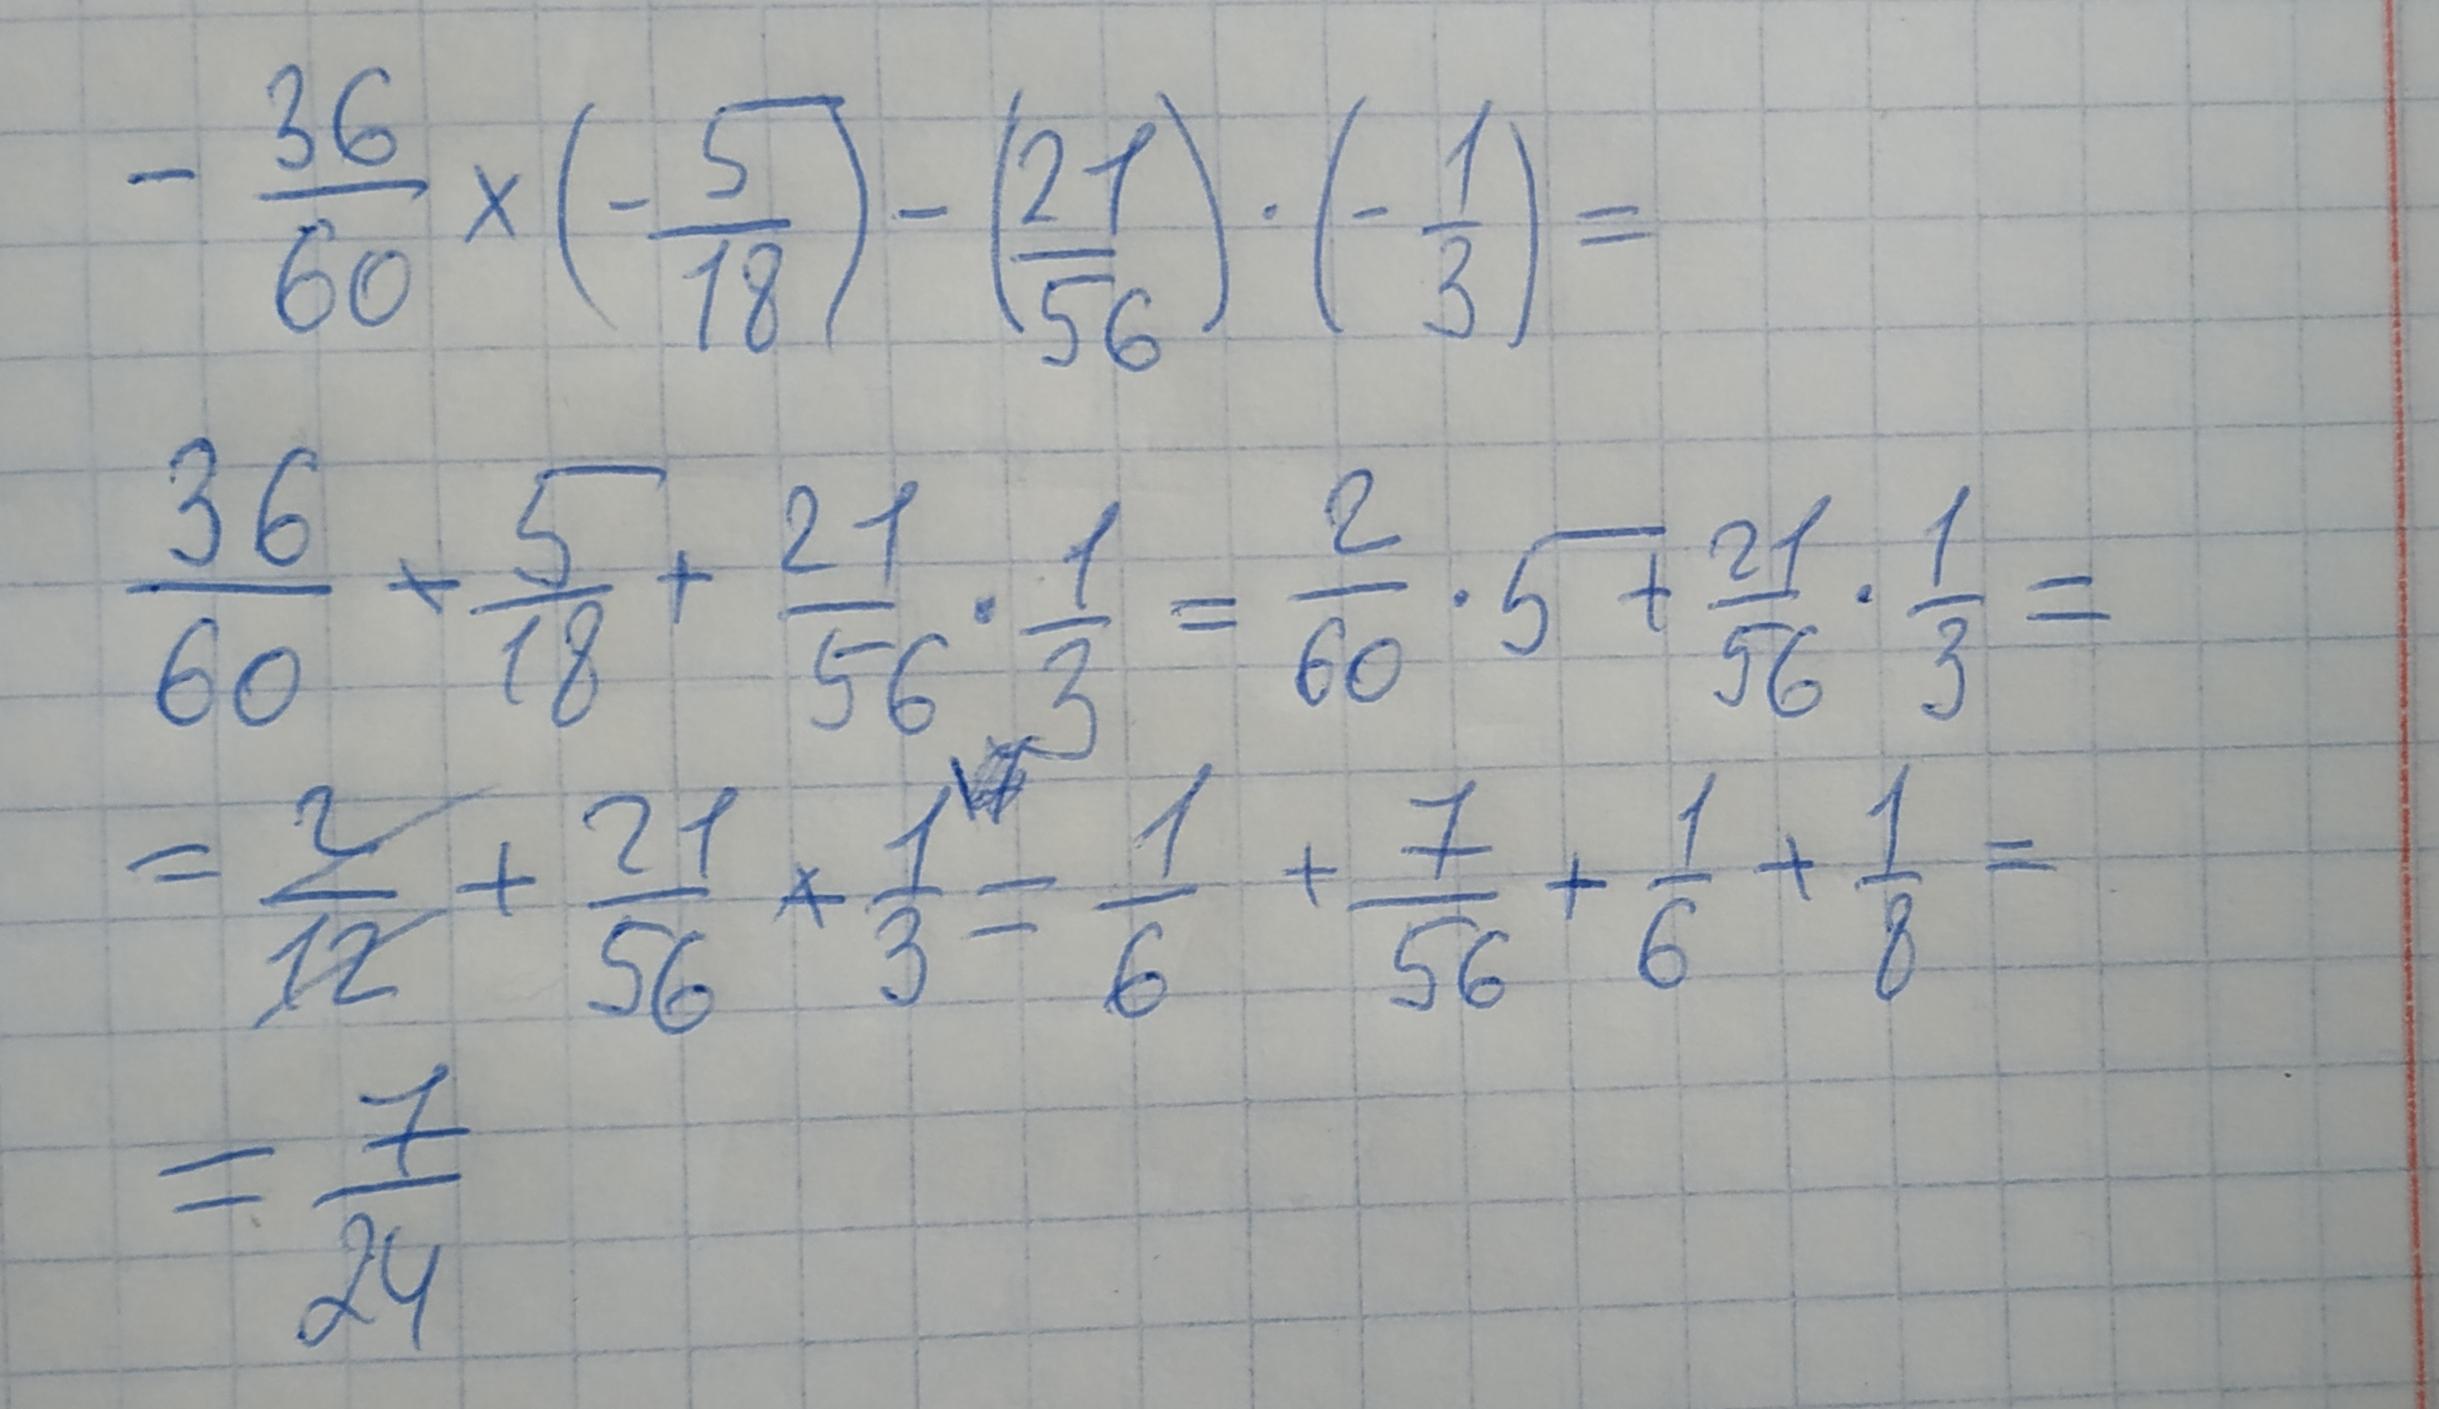 - 36/60 × (- 5/18) - (21/56) · (- 1/3) =
36/60 × 5/18 + 21/56 · 1/3 = 2/60 · 5 + 21/56 · 1/3 =
= 2/12 + 21/56 × 1/3 = 1/6 + 7/56 + 1/6 + 1/8 =
= 7/24